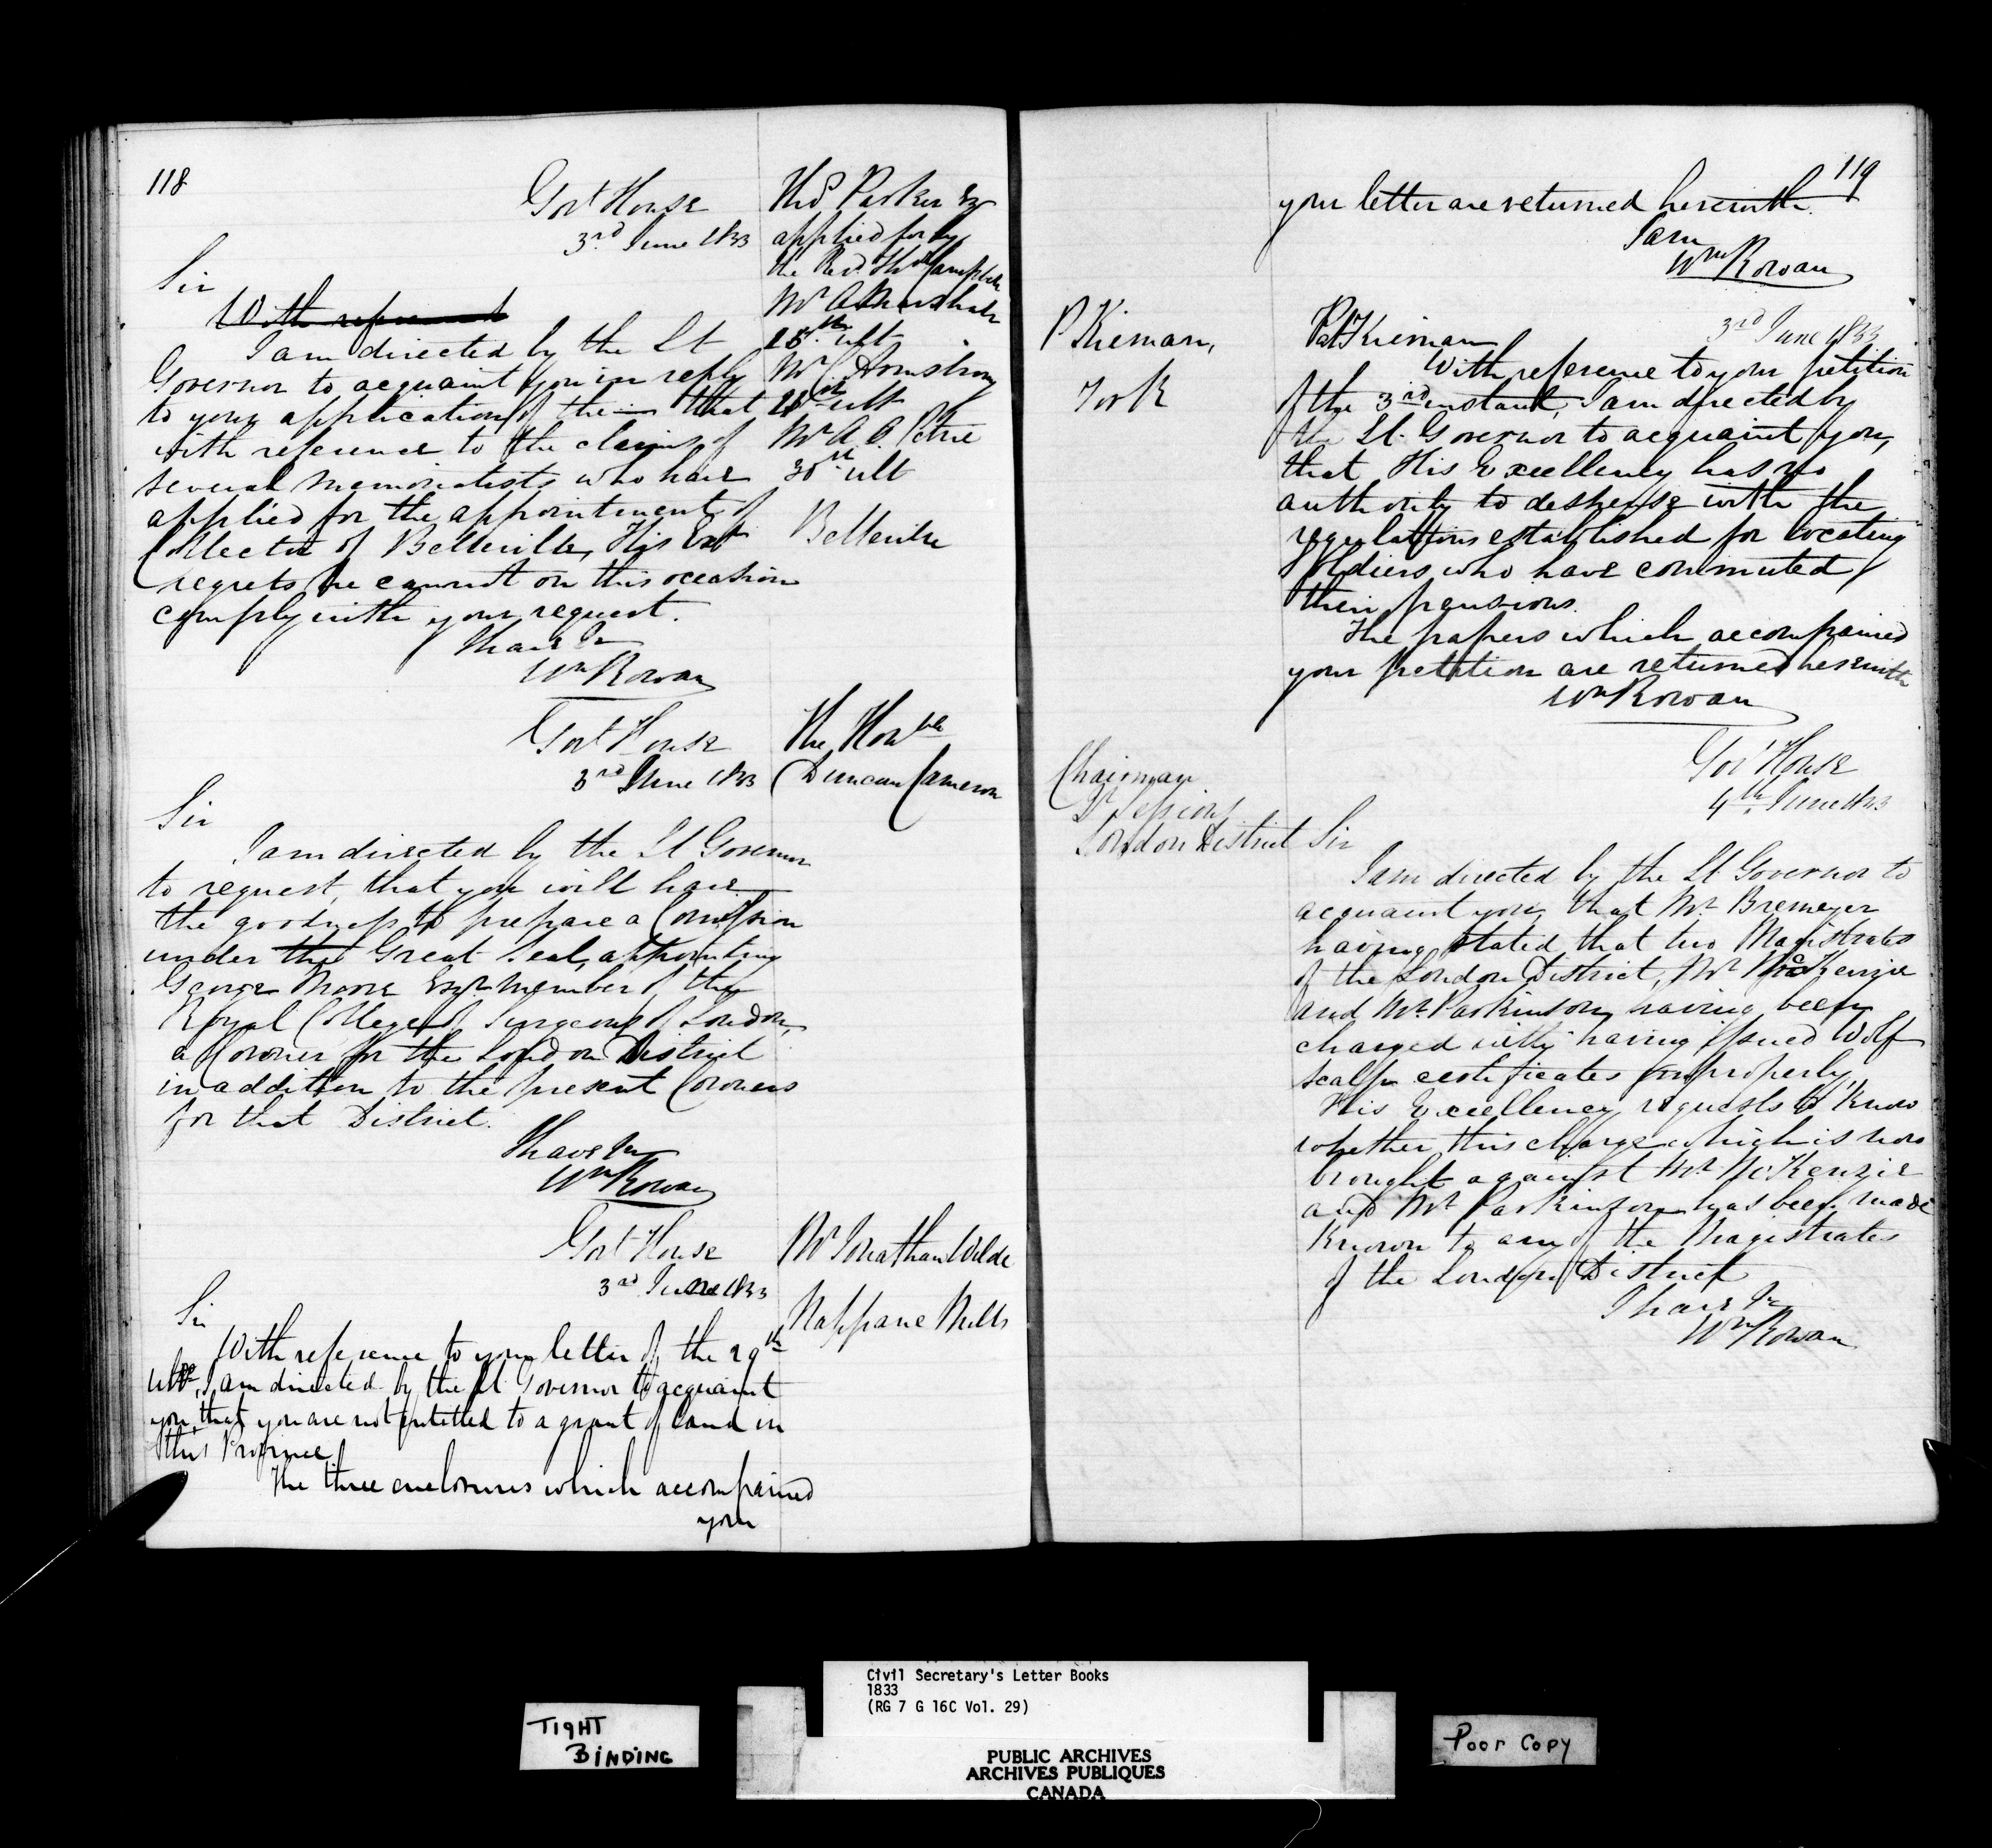 118
Govt House
3rd June 1833
Thos Parker Esq
applied for by
the Revd. Thos Campbell
Mr A Marshall
28th ult
Mr C Armstrong
28th ult
Mr A. O. Petrie
30th ult
Belleville
Sir
With reference
I am directed by the Lt
Governor to acquaint you in reply
to your application of the — that
with reference to the claims of
several memorialists who have
applied for the appointment of
Collector of Belleville, His Exy
regrets he cannot on this occasion
comply with your request.
I have &c
Wm Rowan
Govt House
3rd June 1833
The Honble
Duncan Cameron
Sir
I am directed by the Lt Governor
to request, that you will have
the goodness to prepare a Commission
under the Great Seal, appointing
George Moore Esqr. member of the
Royal College of Surgeons of London,
a Coroner for the London District
in addition to the present Coroners
for that District.
I have &c
Wm Rowan
Govt House
3rd June 1833
Mr Jonathan Wilde
Nappane Mills
Sir
With reference to your letter of the 29th
Ulto, I am directed by the Lt Governor to acquaint
you, that you are not entitled to a grant of land in
this Province
The three enclosures which accompanied
your
119
your letter are returned herewith.
I am
Wm Rowan
P Kiernan,
York
3rd June 1833
Pat Kiernan
With reference to your petition
of the 3rd instant, I am directed by
the Lt. Governor to acquaint you,
that His Excellency has no
authority to despense with the
regulations established for locating
soldiers who have commuted
their pensions.
The papers which accompanied
your petition are returned herewith
Wm Rowan
Govt House
4th June 1833
Chairman
Qr Sessions
London District
Sir
I am directed by the Lt. Governor to
acquaint you, that Mr Bremeyer
having stated that two Magistrates
of the London District, Mr McKenzie
and Mr. Parkinson, having been
charged with having issued Wolf
scalp certificates improperly,
His Excellency requests to know
whether this charge which is now
brought against Mr McKenzie
and Mr Parkinson has been made
known to any of the Magistrates
of the London District
I have &c
Wm Rowan
Civil Secretary's Letter Books
1833
(RG 7 G 16C Vol. 29)
TIGHT
BINDING
PUBLIC ARCHIVES
ARCHIVES PUBLIQUES
CANADA
Poor Copy